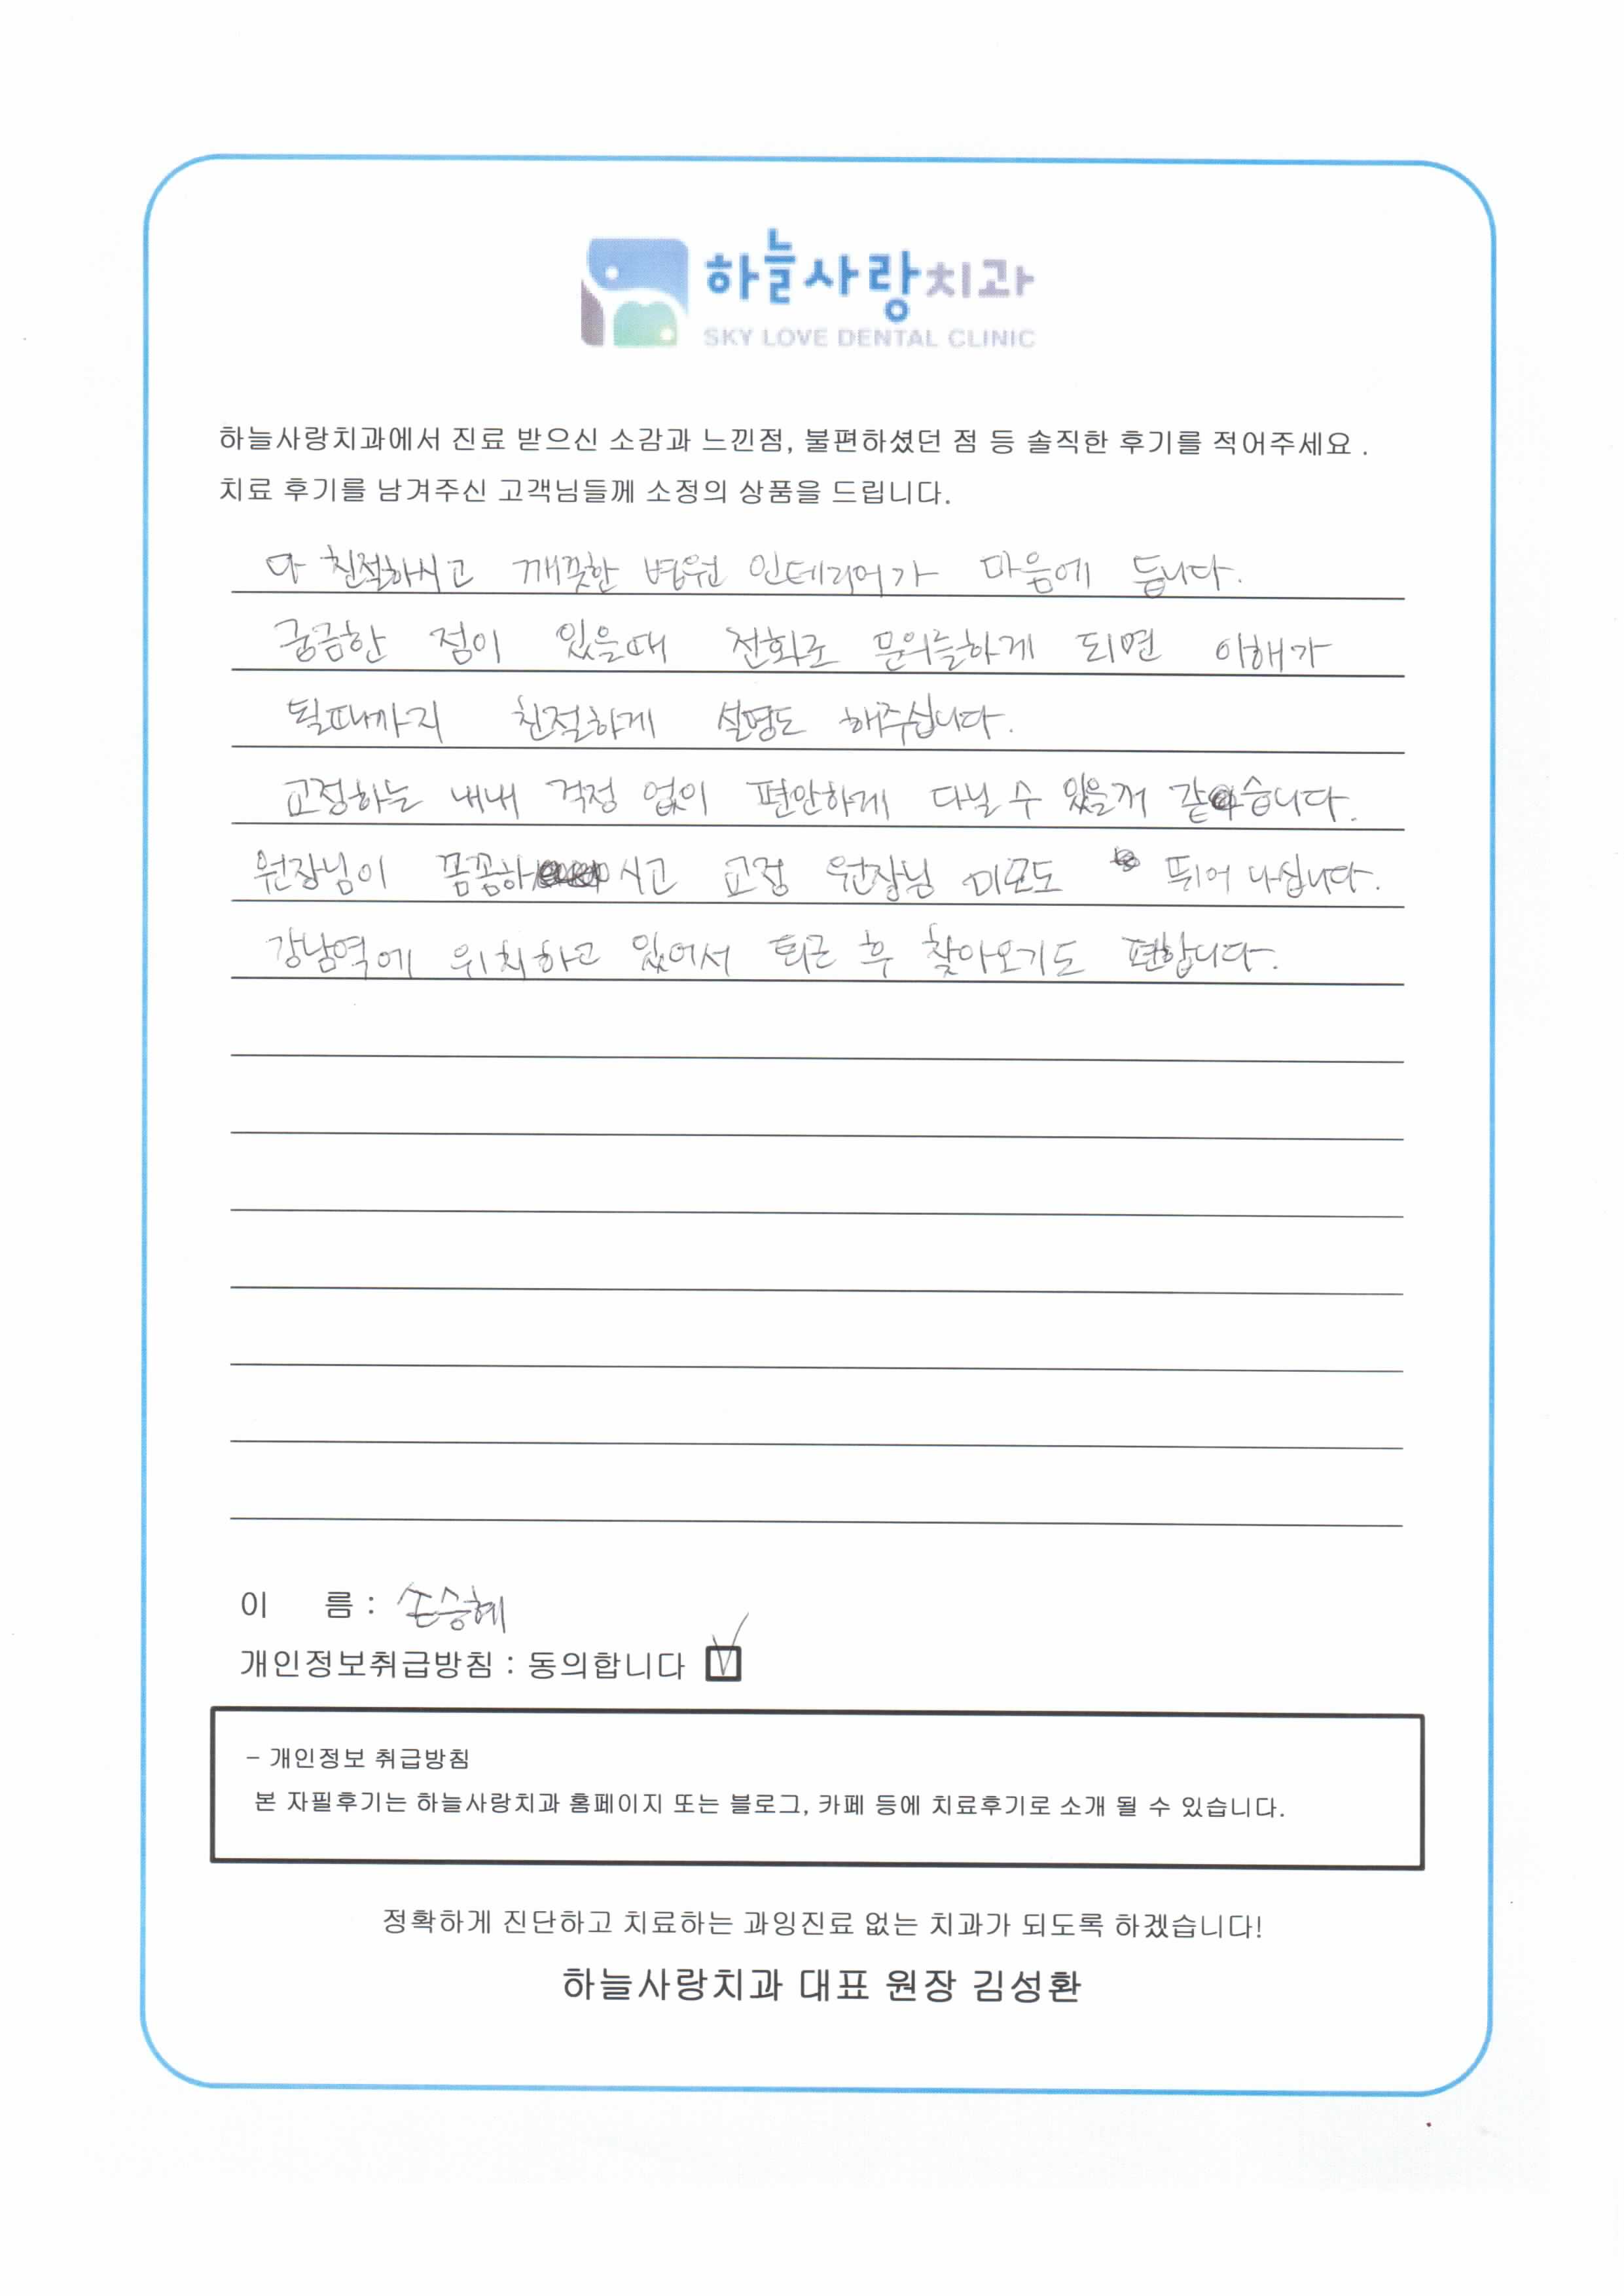 하늘사랑치과
SKY LOVE DENTAL CLINIC
하늘사랑치과에서 진료 받으신 소감과 느낀점, 불편하셨던 점 등 솔직한 후기를 적어주세요 .
치료 후기를 남겨주신 고객님들께 소정의 상품을 드립니다.
다 친절하시고 깨끗한 병원 인테리어가 마음에 듭니다.
궁금한 점이 있을때 전화로 문의를하게 되면 이해가
될때까지 친절하게 설명도 해주십니다.
교정하는 내내 걱정 없이 편안하게 다닐 수 있을꺼 같습니다.
원장님이 꼼꼼하시고 교정 원장님 미모도 뛰어 나십니다.
강남역에 위치하고 있어서 퇴근 후 찾아오기도 편합니다.
이 름 : 손승혜
개인정보취급방침 : 동의합니다
- 개인정보 취급방침
본 자필후기는 하늘사랑치과 홈페이지 또는 블로그, 카페 등에 치료후기로 소개 될 수 있습니다.
정확하게 진단하고 치료하는 과잉진료 없는 치과가 되도록 하겠습니다!
하늘사랑치과 대표 원장 김성환